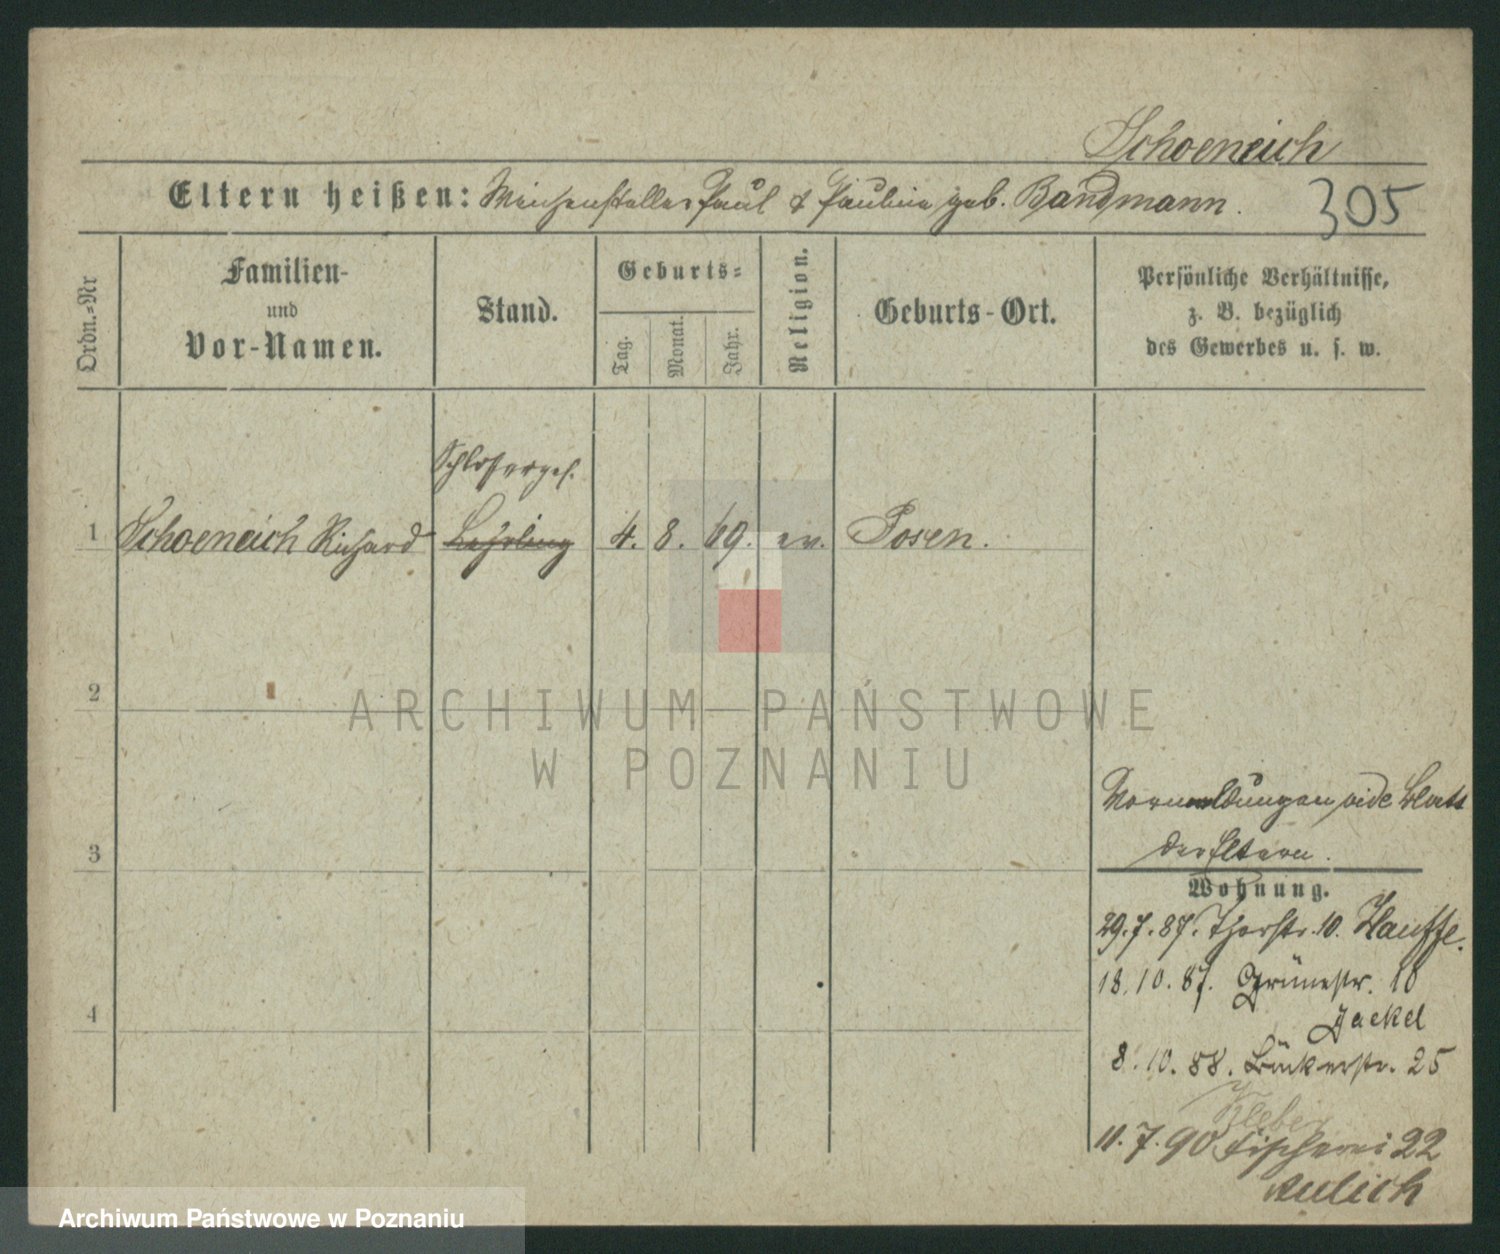 Schoeneich
Eltern heißen: Weichensteller Paul & Pauline geb. Bandmann.
305
Ordn.-Nr
Familien-
und
Vor-Namen.
Stand.
Geburts-
Tag.
Monat.
Jahr.
Religion.
Geburts-Ort.
Persönliche Verhältnisse,
z. B. bezüglich
des Gewerbes u. s. w.
Schlosserges.
1 Schoeneich Richard Lehrling 4. 8. 69. ev. Posen.
2
ARCHIWUM PAŃSTWOWE
W POZNANIU
Vormeldungen vide Blatt
3
der Eltern.
Wohnung.
29.7.87. Thorstr. 10. Hauffe.
18.10.87. Grünestr. 10
4
Jaekel
8.10.88. Bäckerstr. 25
Kleber
11.7.90 Fischerei 22
Aulich
Archiwum Państwowe w Poznaniu